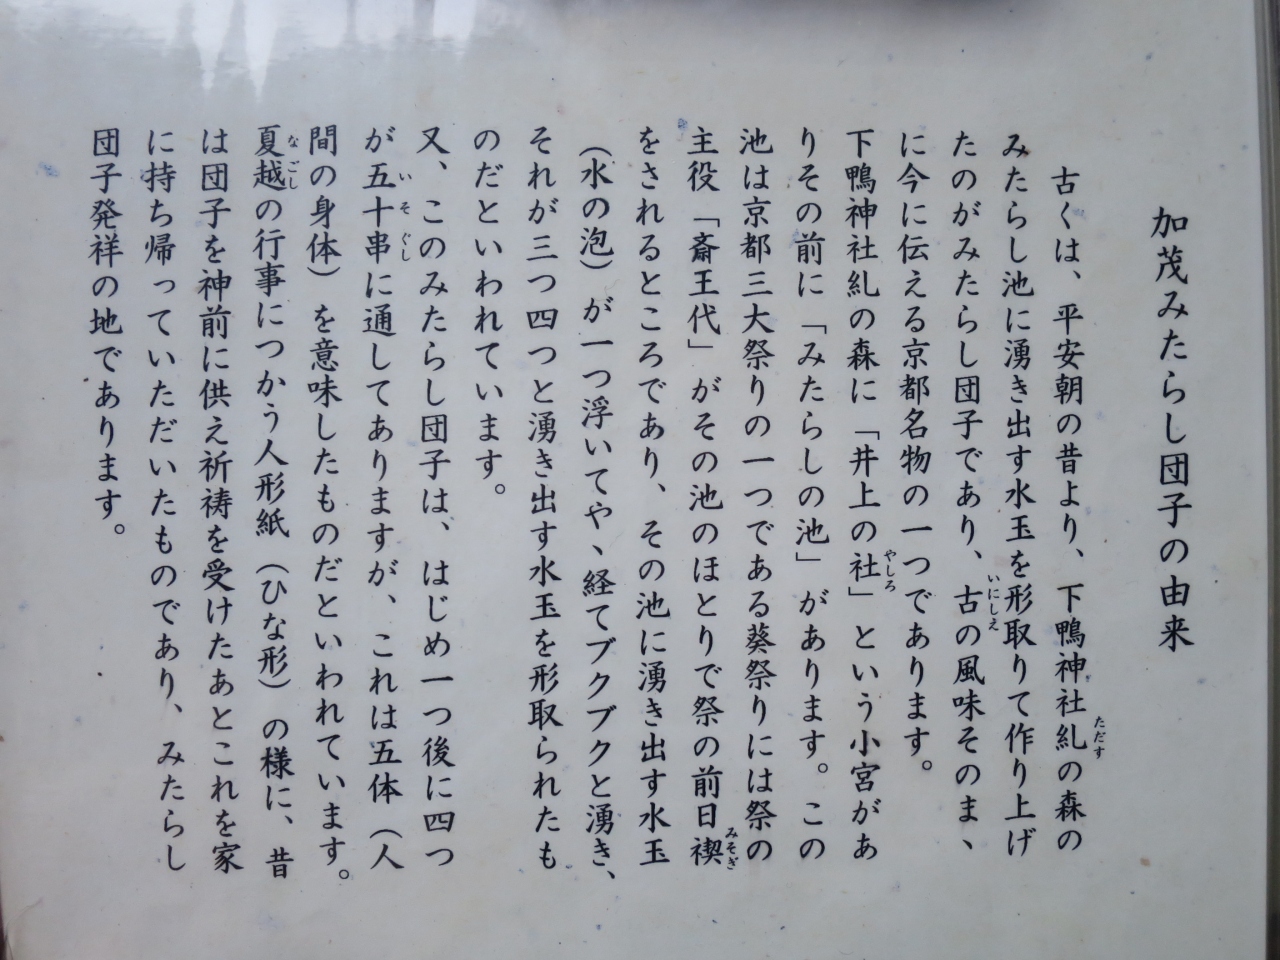 加茂みたらし団子の由来
古くは、平安朝の昔より、下鴨神社糺の森の
みたらし池に湧き出す水玉を形取りて作り上げ
たのがみたらし団子であり、古の風味そのまゝ
に今に伝える京都名物の一つであります。
下鴨神社糺の森に「井上の社」という小宮があ
りその前に「みたらしの池」があります。この
池は京都三大祭りの一つである葵祭りには祭の
主役「斎王代」がその池のほとりで祭の前日禊
をされるところであり、その池に湧き出す水玉
(水の泡)が一つ浮いてやゝ経てブクブクと湧き、
それが三つ四つと湧き出す水玉を形取られたも
のだといわれています。
又、このみたらし団子は、はじめ一つ後に四つ
が五十串に通してありますが、これは五体(人
間の身体)を意味したものだといわれています。
夏越の行事につかう人形紙(ひな形)の様に、昔
は団子を神前に供え祈祷を受けたあとこれを家
に持ち帰っていただいたものであり、みたらし
団子発祥の地であります。